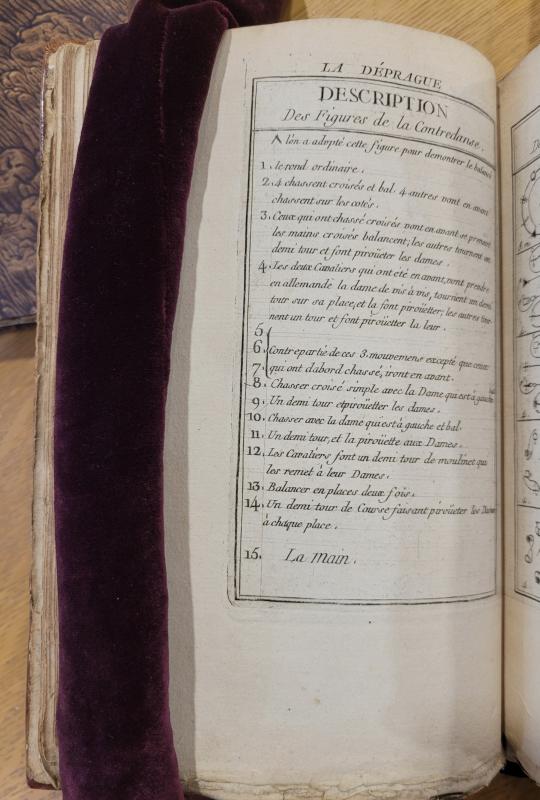 LA DÉPRAGUE
DESCRIPTION
Des Figures de la Contredanse.
l'on a adopté cette figure pour demontrer le balancé
1. le rond ordinaire.
2. 4 chassent croisés et bal. 4 autres vont en avant
chassent sur les cotés.
3. Ceux qui ont chassé croisés vont en avant se prenent
les mains croisés balancent; les autres tournent un
demi tour et font piroüeter les dames.
4. Les deux Cavaliers qui ont été en avant, vont prendre
en allemande la dame de vis à vis, tournent un demi
tour sur sa place, et la font piroüetter; les autres tour-
nent un tour et font piroüetter la leur.
5.
6. Contrepartie de ces 3. mouvemens excepté que ceux
7. qui ont d'abord chassé, iront en avant.
8. Chasser croisé simple avec la Dame qui est à gauche
9. Un demi tour et piroüetter les dames.
10. Chasser avec la dame qui est à gauche et bal.
11. Un demi tour, et la piroüette aux Dames.
12. Les Cavaliers font un demi tour de moulinet qui
les remet à leur Dames.
13. Balancer en places deux fois.
14. Un demi tour de Course faisant piroüeter les Dames
à chaque place.
15. La main.